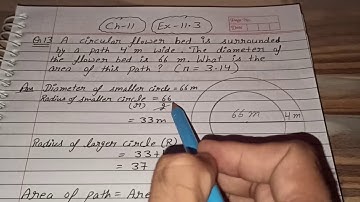 Ch-11
Ex-11.3
Q.13 A circular flower bed is surrounded
by a path 4 m wide. The diameter of
the flower bed is 66 m. What is the
area of this path? (π = 3.14)
Ans Diameter of smaller circle = 66 m
Radius of smaller circle = 66
(r) 2
= 33 m
66 m
4 m
Radius of larger circle (R)
= 33+
= 37
Area of path = Area